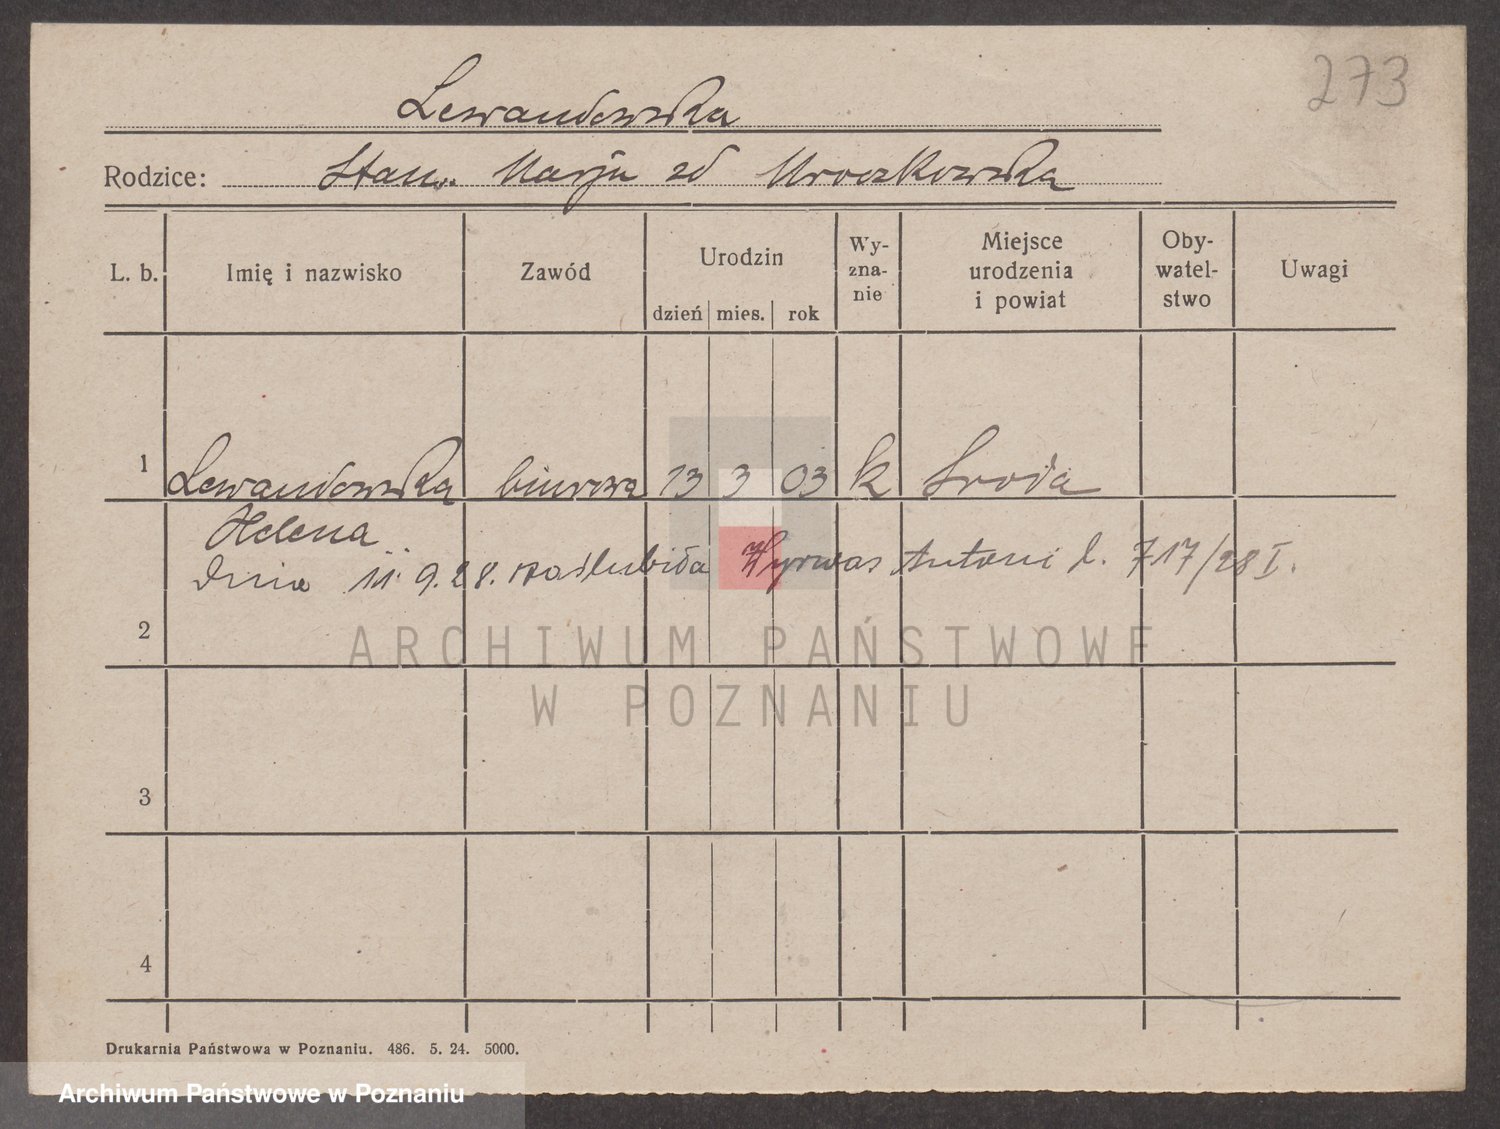 273
Lewandowska
Rodzice: Stan. Marja zd Mroczkowska
L. b. Imię i nazwisko Zawód Urodzin Wy-zna-nie Miejsce urodzenia i powiat Oby-watel-stwo Uwagi
dzień mies. rok
1 Lewandowska biurowa 13 3 03 k Środa
Helena
Dnia 11. 9. 28. zaślubiła Wyrwas Antoni l. 717/28 I.
2
ARCHIWUM PAŃSTWOWE
W POZNANIU
3
4
Drukarnia Państwowa w Poznaniu. 486. 5. 24. 5000.
Archiwum Państwowe w Poznaniu